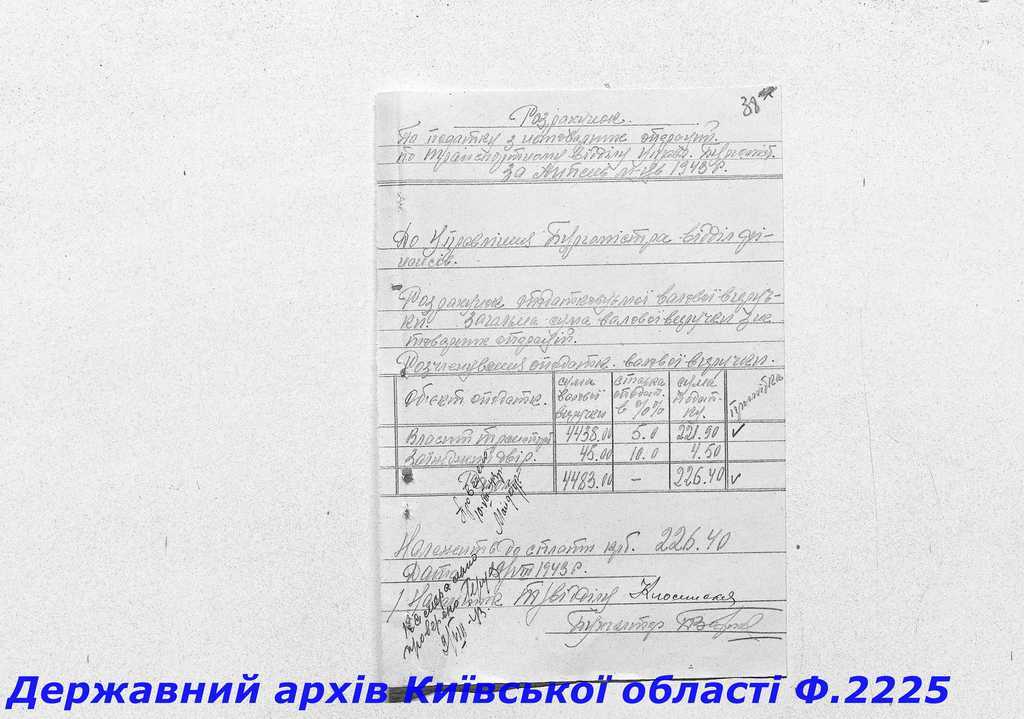 38
Розрахунок
По податку з нетоварних операцій
по транспортному відділу Управ. Бургоміст.
за липень м-ць 1943 р.
До Управління Бургомістра відділ фі-
нансів.
Розрахунок оподатковуємої валової виручки. Загальна сума валової виручки з не
товарних операцій.
Розчисування оподатк. валової виручки.
Об'єкт оподатк. сума валової виручки ставка оподат. в % сума податку. примітка
Власний транспорт 4438.00 5.0 221.90 ✓
Заїжджий двір. 48.00 10.0 4.50
4483.00 — 226.40 ✓
Належить до сплати крб. 226.40
Дата VIII 1943 р.
Начальник Т/відділу
Бухгалтер
проверено
Державний архів Київської області Ф.2225